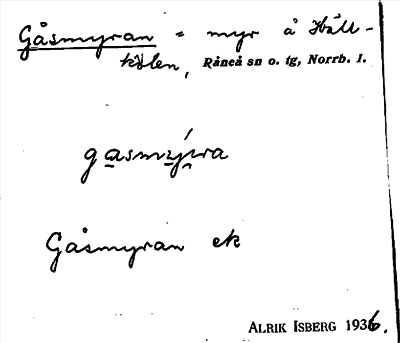 Gåsmyran = myr å Håll-
kölen, Råneå sn o. tg, Norrb. l.
gasmýra
Gåsmyran ek
ALRIK ISBERG 1936.